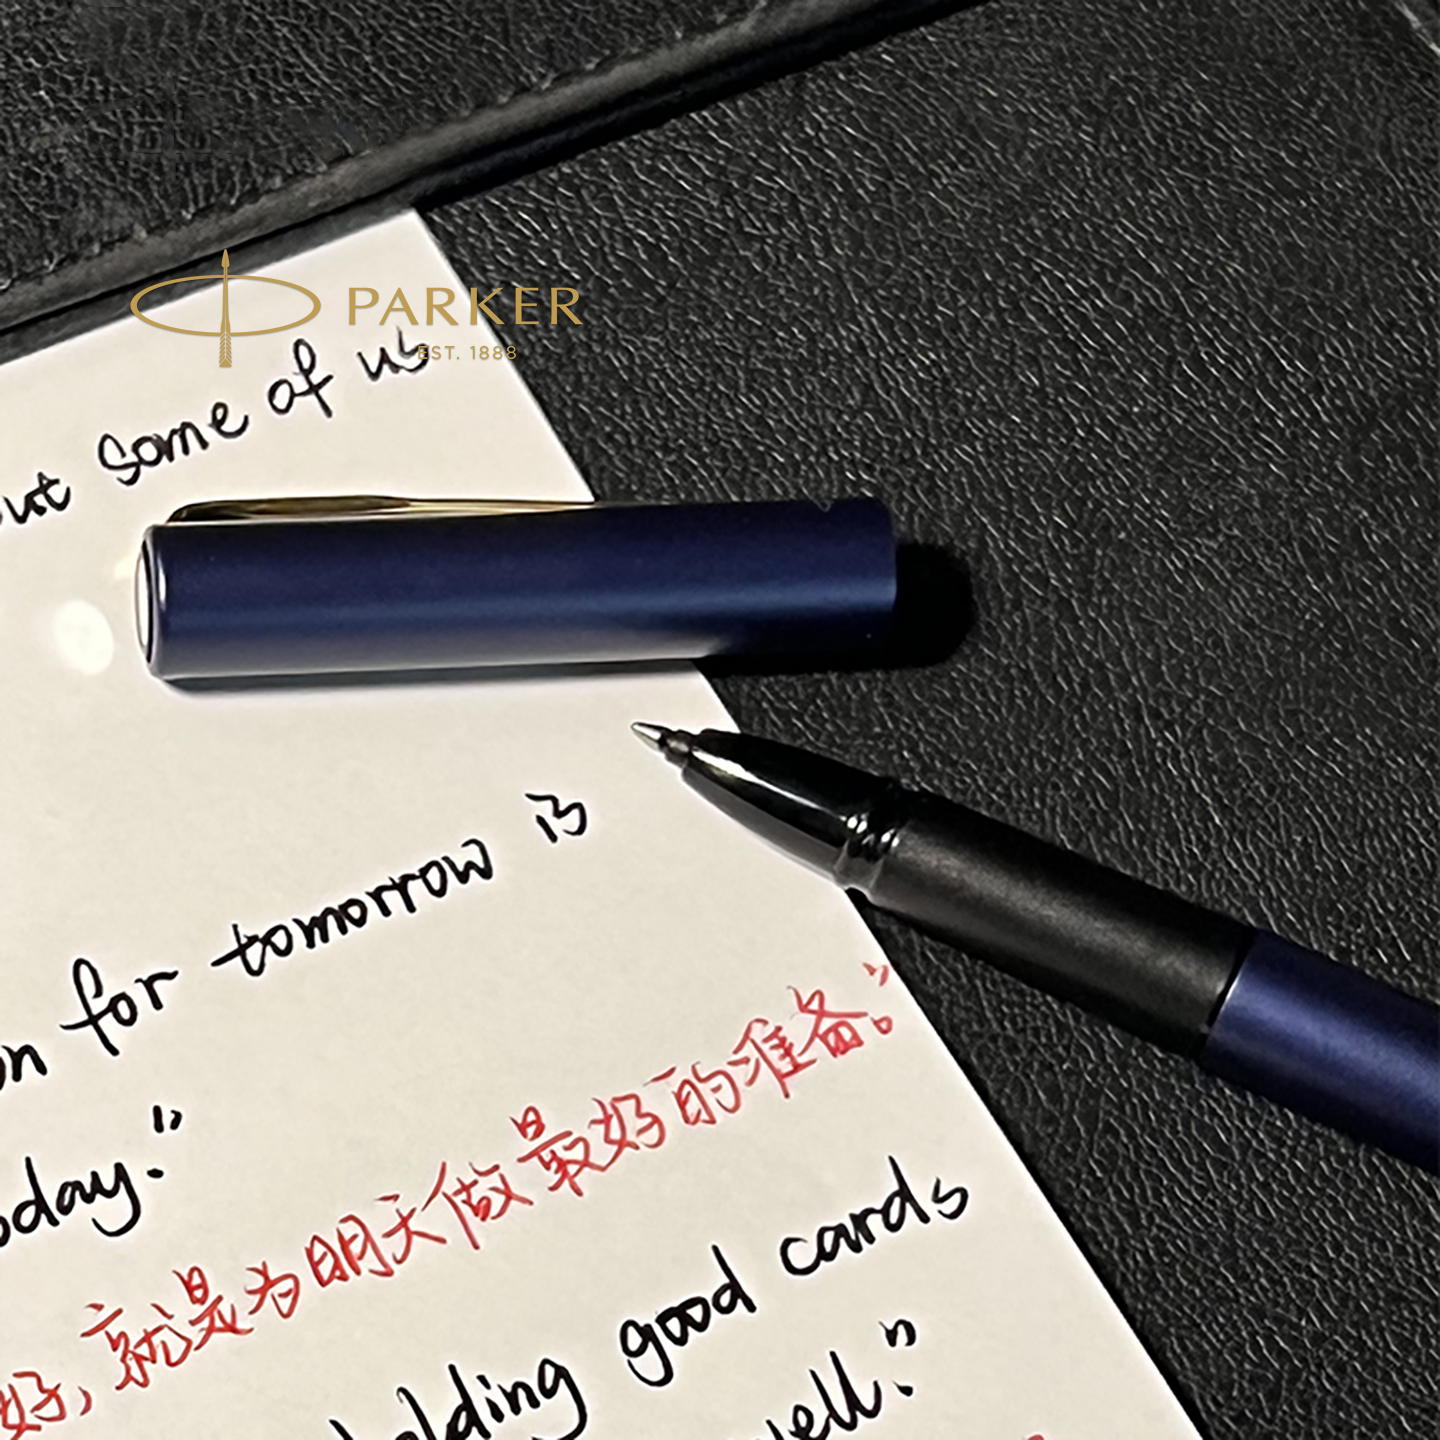 PARKER
EST. 1888
some of us
for tomorrow is
今好,就是为明天做最好的准备。”
good cards